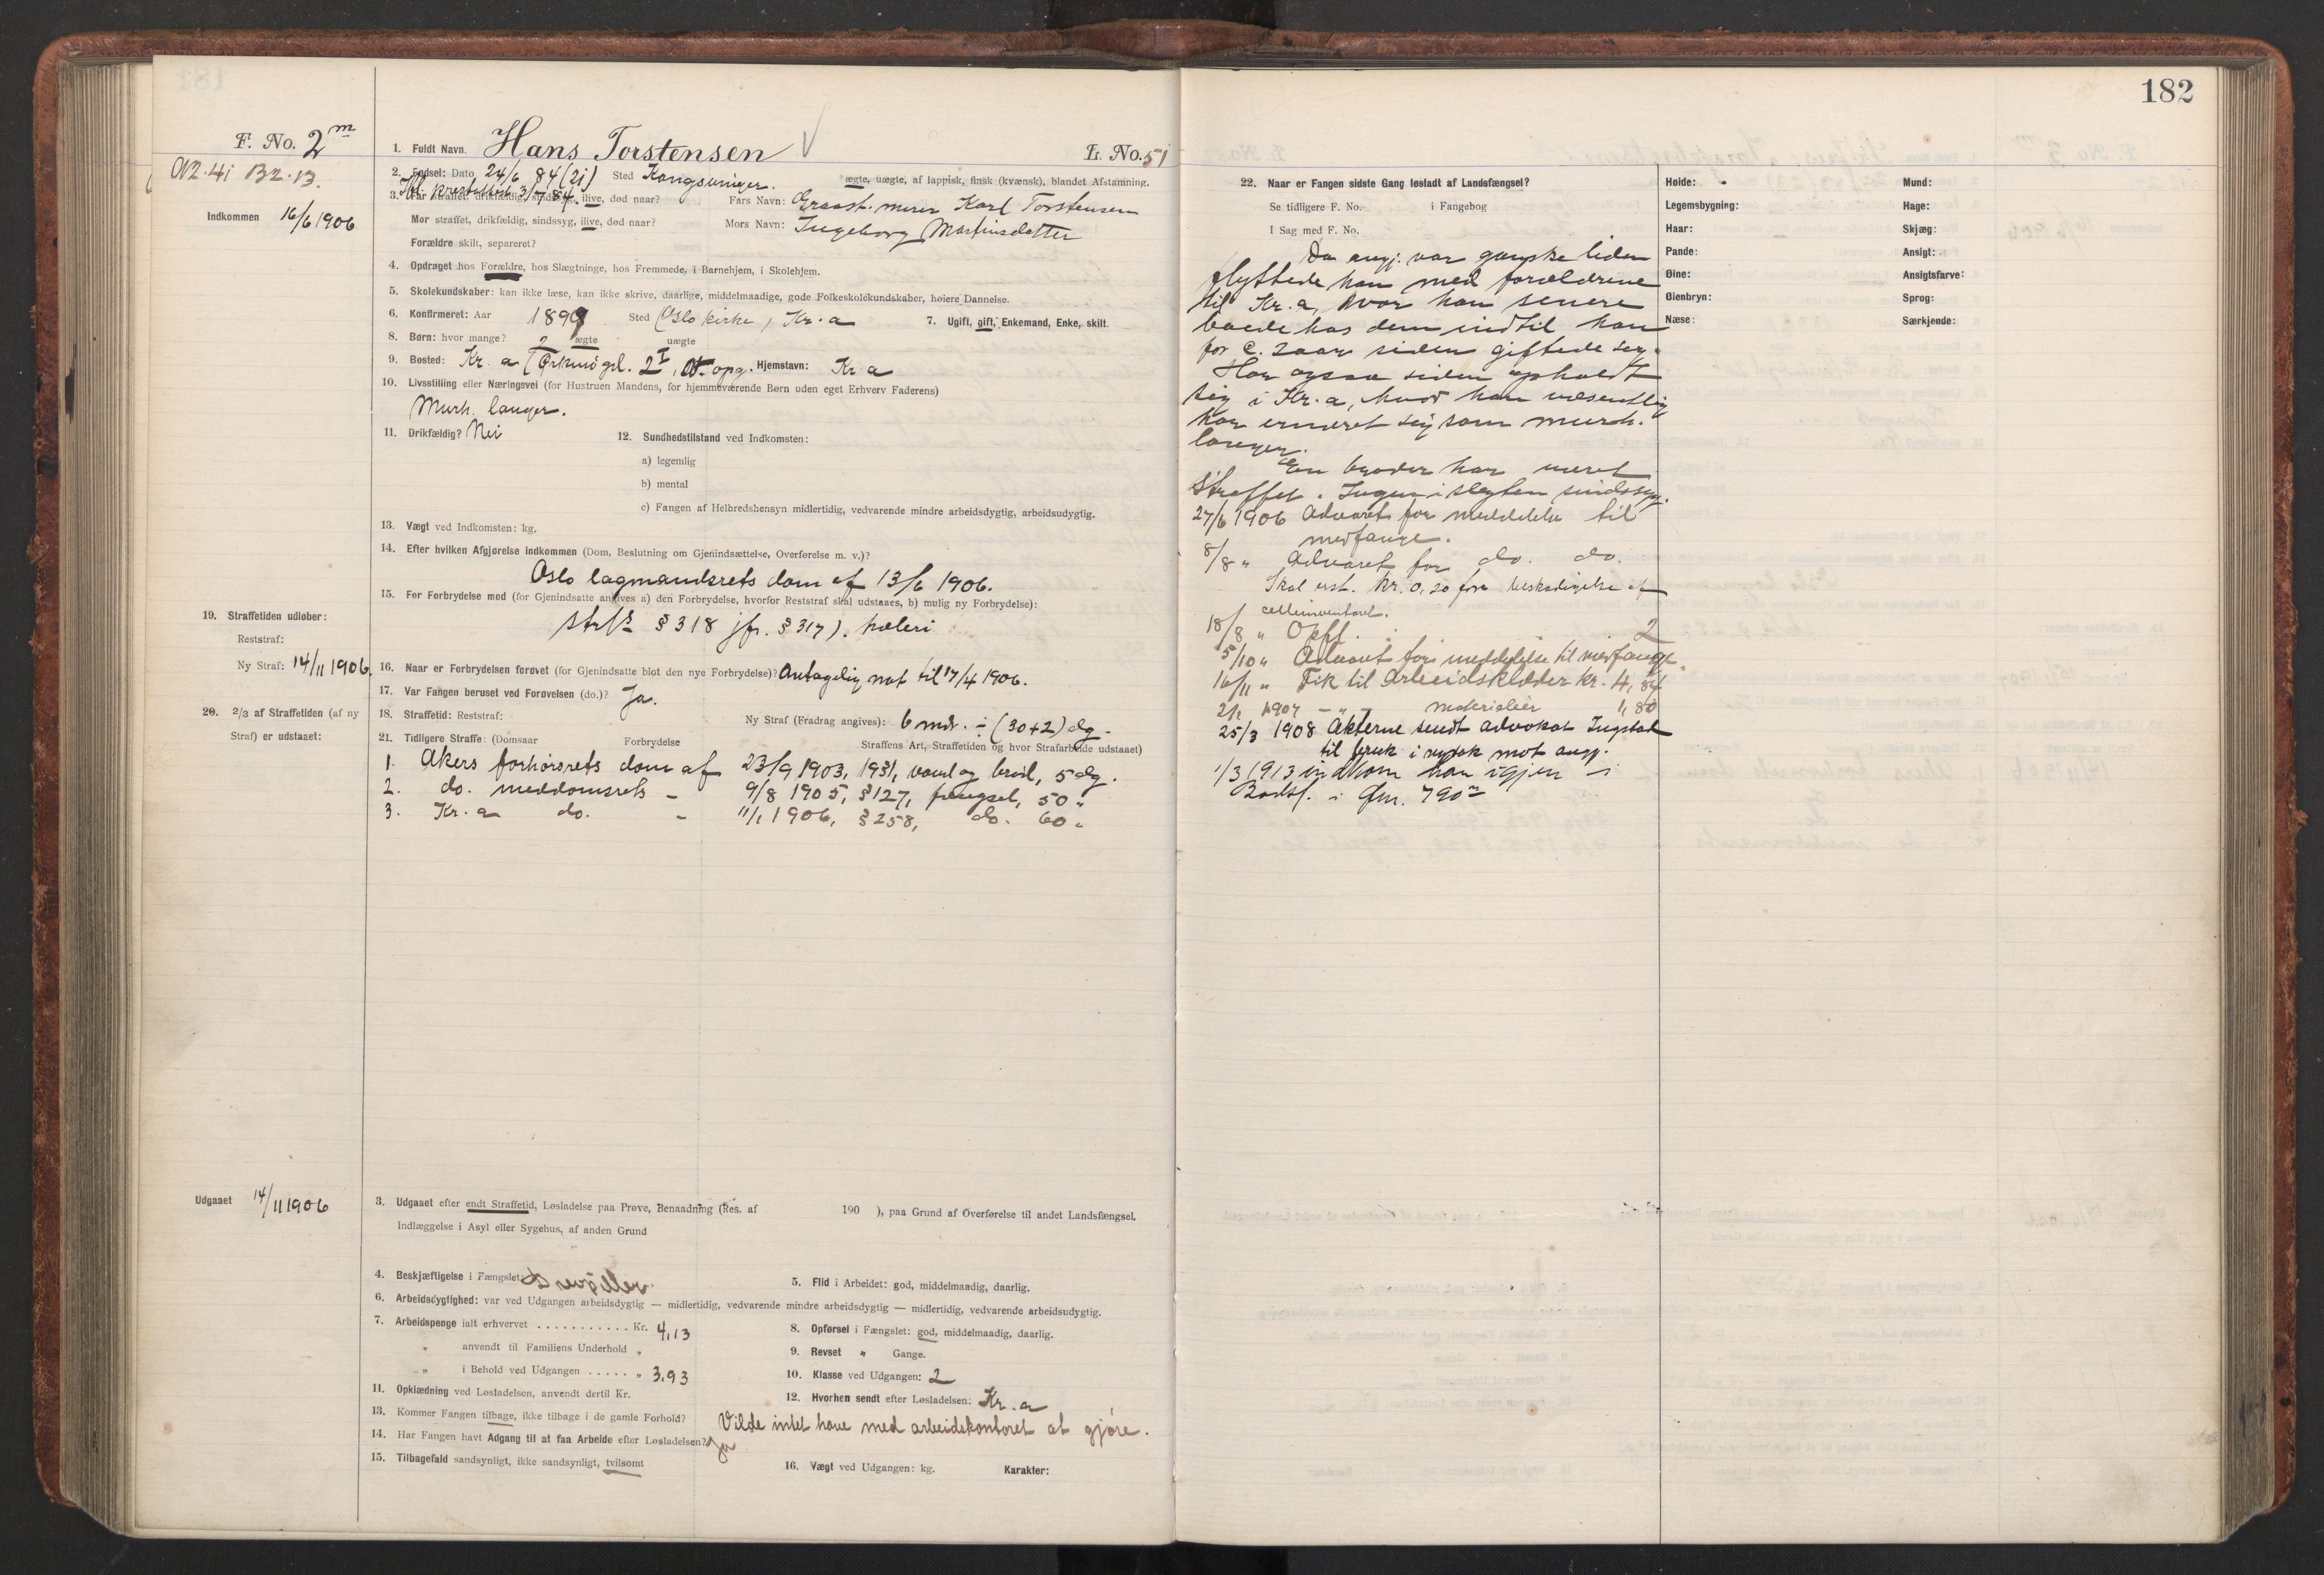 182
F. No. 2 m
1. Fuldt Navn. Hans Torstensen
L. No. 51
N2.41 B2.13.
2. Fødsel: Dato 24/6 84 (21) Sted Kongsvinger. ægte, uægte, af lappisk, finsk (kvænsk), blandet Afstamning.
Ifl. præsteattest 3/7 84.
3. Far straffet, drikfældig, sindssyg, ilive, død naar? Fars Navn: Karl Torstensen
Indkommen 16/6 1906
Mor straffet, drikfældig, sindssyg, ilive, død naar? Mors Navn: Ingeborg Martinsdatter
Forældre skilt, separeret?
4. Opdraget hos Forældre, hos Slægtninge, hos Fremmede, i Barnehjem, i Skolehjem.
5. Skolekundskaber: kan ikke læse, kan ikke skrive, daarlige, middelmaadige, gode Folkeskolekundskaber, høiere Dannelse.
6. Konfirmeret: Aar 1899 Sted Oslo kirke, Kr.a 7. Ugift, gift, Enkemand, Enke, skilt.
8. Børn: hvor mange? 2 ægte uægte
9. Bosted: Kr.a 2 I, opg. Hjemstavn: Kr.a
10. Livsstilling eller Næringsvei (for Hustruen Mandens, for hjemmeværende Børn uden eget Erhverv Faderens)
Murh. langer.
11. Drikfældig? Nei 12. Sundhedstilstand ved Indkomsten:
a) legemlig
b) mental
c) Fangen af Helbredshensyn midlertidig, vedvarende mindre arbeidsdygtig, arbeidsudygtig.
13. Vægt ved Indkomsten: kg.
14. Efter hvilken Afgjørelse indkommen (Dom, Beslutning om Gjenindsættelse, Overførelse m. v.)?
Oslo lagmandsrets dom af 13/6 1906.
15. For Forbrydelse mod (for Gjenindsatte angives a) den Forbrydelse, hvorfor Reststraf skal udstaaes, b) mulig ny Forbrydelse):
§ 318 jfr. § 317). hæleri
19. Straffetiden udløber:
Reststraf:
Ny Straf: 14/11 1906.
16. Naar er Forbrydelsen forøvet (for Gjenindsatte blot den nye Forbrydelse)? Antagelig nat til 17/4 1906.
17. Var Fangen beruset ved Forøvelsen (do.)? Ja.
20. 2/3 af Straffetiden (af ny
Straf) er udstaaet:
18. Straffetid: Reststraf: Ny Straf (Fradrag angives): 6 mdr. ÷ (30+2) dg.
21. Tidligere Straffe: (Domsaar Forbrydelse Straffens Art, Straffetiden og hvor Strafarbeide udstaaet)
1. Akers forhørsrets dom af 23/9 1903, 1931, vand og brød, 5 dg.
2. do. meddomsrets - 9/8 1905, § 127, fængsel, 50 "
3. Kr.a do. - 11/1 1906, § 258, do. 60 "
Udgaaet 14/11 1906
3. Udgaaet efter endt Straffetid, Løsladelse paa Prøve, Benaadning (Res. af 190 ), paa Grund af Overførelse til andet Landsfængsel,
Indlæggelse i Asyl eller Sygehus, af anden Grund
4. Beskjæftigelse i Fængslet: 5. Flid i Arbeidet: god, middelmaadig, daarlig.
6. Arbeidsdygtighed: var ved Udgangen arbeidsdygtig — midlertidig, vedvarende mindre arbeidsdygtig — midlertidig, vedvarende arbeidsudygtig.
7. Arbeidspenge ialt erhvervet . . . . . . . . . . . Kr. 4,13 8. Opførsel i Fængslet: god, middelmaadig, daarlig.
" anvendt til Familiens Underhold " 9. Revset " Gange.
" i Behold ved Udgangen . . . . . " 3.93 10. Klasse ved Udgangen: 2
11. Opklædning ved Løsladelsen, anvendt dertil Kr. 12. Hvorhen sendt efter Løsladelsen: Kr.a
13. Kommer Fangen tilbage, ikke tilbage i de gamle Forhold?
Vilde intet have med arbeidskontoret at gjøre.
14. Har Fangen havt Adgang til at faa Arbeide efter Løsladelsen? Ja
15. Tilbagefald sandsynligt, ikke sandsynligt, tvilsomt 16. Vægt ved Udgangen: kg. Karakter:
22. Naar er Fangen sidste Gang løsladt af Landsfængsel?
Se tidligere F. No. i Fangebog
I Sag med F. No.
Da angj. var ganske liden
flyttede han med forældrene
til Kr.a, hvor han senere
boede hos dem indtil han
for c. 2 aar siden giftede sig.
Har ogsaa siden opholdt
sig i Kr.a, hvor han væsentlig
har ernæret sig som murh.
langer.
En broder har været
straffet. Ingen i slegten sindssyg.
27/6 1906 Advaret for meddelelse til
medfange.
8/8 " Advaret for do. do.
Skal erst. Kr. 0,20 for beskadigelse af
celleinventaret.
18/8 " Opfl. 2
5/10 " Advaret for meddelelse til medfange.
16/11 " Fik til Arbeidsklæder kr. 4,84
2/1 1907 - " - materialier 1,80
25/3 1908 Akterne sendt advokat Ingstad
til bruk i ny sak mot angj.
1/3 1913 indkom han igjen i
Bodsf. i fnr. 790 m
Høide: Mund:
Legemsbygning: Hage:
Haar: Skjæg:
Pande: Ansigt:
Øine: Ansigtsfarve:
Øienbryn: Sprog:
Næse: Særkjende: